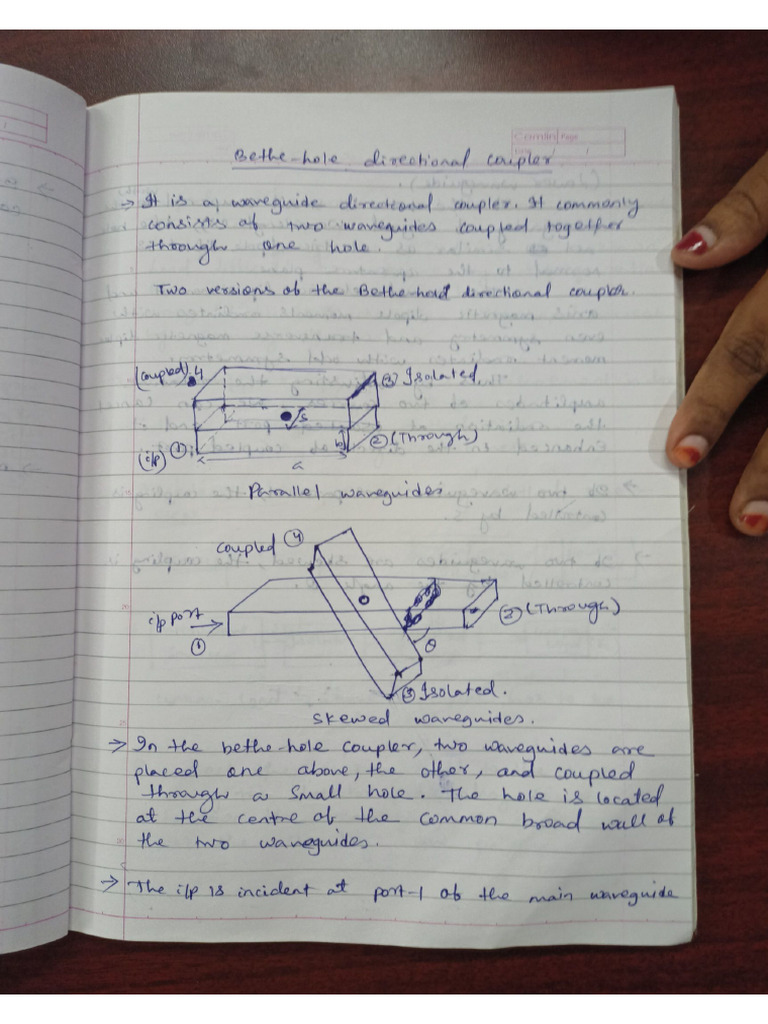 Camlin Page
Bethe-hole directional coupler
→ It is a waveguide directional coupler. It commonly
consists of two waveguides coupled together
through one hole.
Two versions of the Bethe-hold directional coupler.
(coupled) 4
③ Isolated
S
(i/p) ①
b
② (Through)
a
Parallel waveguides
coupled ④
i/p port
①
② (Through)
θ
③ Isolated.
Skewed waveguides.
→ In the bethe-hole coupler, two waveguides are
placed one above, the other, and coupled
through a small hole. The hole is located
at the centre of the common broad wall of
the two waveguides.
→ The i/p is incident at port-1 of the main waveguide